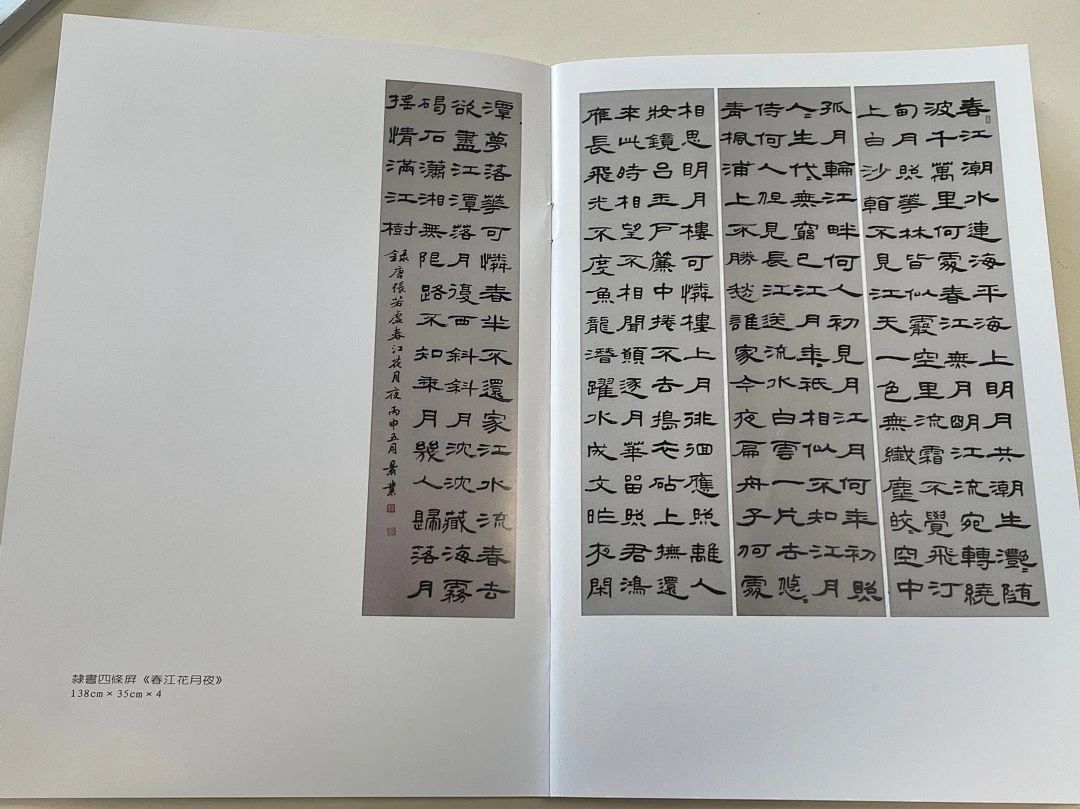 春江潮水連海平海上明月共潮生灩〻随
波千萬里何處春江無月明江流宛轉繞
甸月照華林皆似霰空里流霜不覺飛汀
上白沙看不見江天一色無纖塵皎〻空中
孤月輪江畔何人初見月江月何年初照
人〻生代〻無窮已江月年〻祇相似不知江月
侍何人但見長江送流水白雲一片去悠〻
青楓浦上不勝愁誰家今夜扁舟子何處
相思明月樓可憐樓上月徘徊應照離人
妝鏡台玉戶簾中捲不去搗衣砧上撫還
來此時相望不相聞願逐月華留照君鴻
雁長飛光不度魚龍潛躍水成文昨夜閑
潭夢落華可憐春半不還家江水流春去
欲盡江潭落月復西斜斜月沈沈藏海霧
碣石瀟湘無限路不知乘月幾人歸落月
搖情滿江樹
録唐張若虛春江花月夜丙申五月景業
隸書四條屏《春江花月夜》
138cm×35cm×4